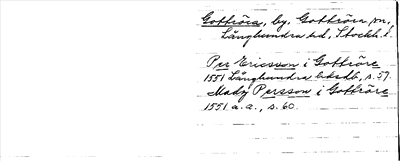 Gottröra, by. Gottröra sn,
Långhundra hd. Stockh. l.
Per Ericsson i Gottröre
1551 Långhundra hdsdb, s. 57.
Mady Persson i Gottröre
1551 a.a., s. 60.